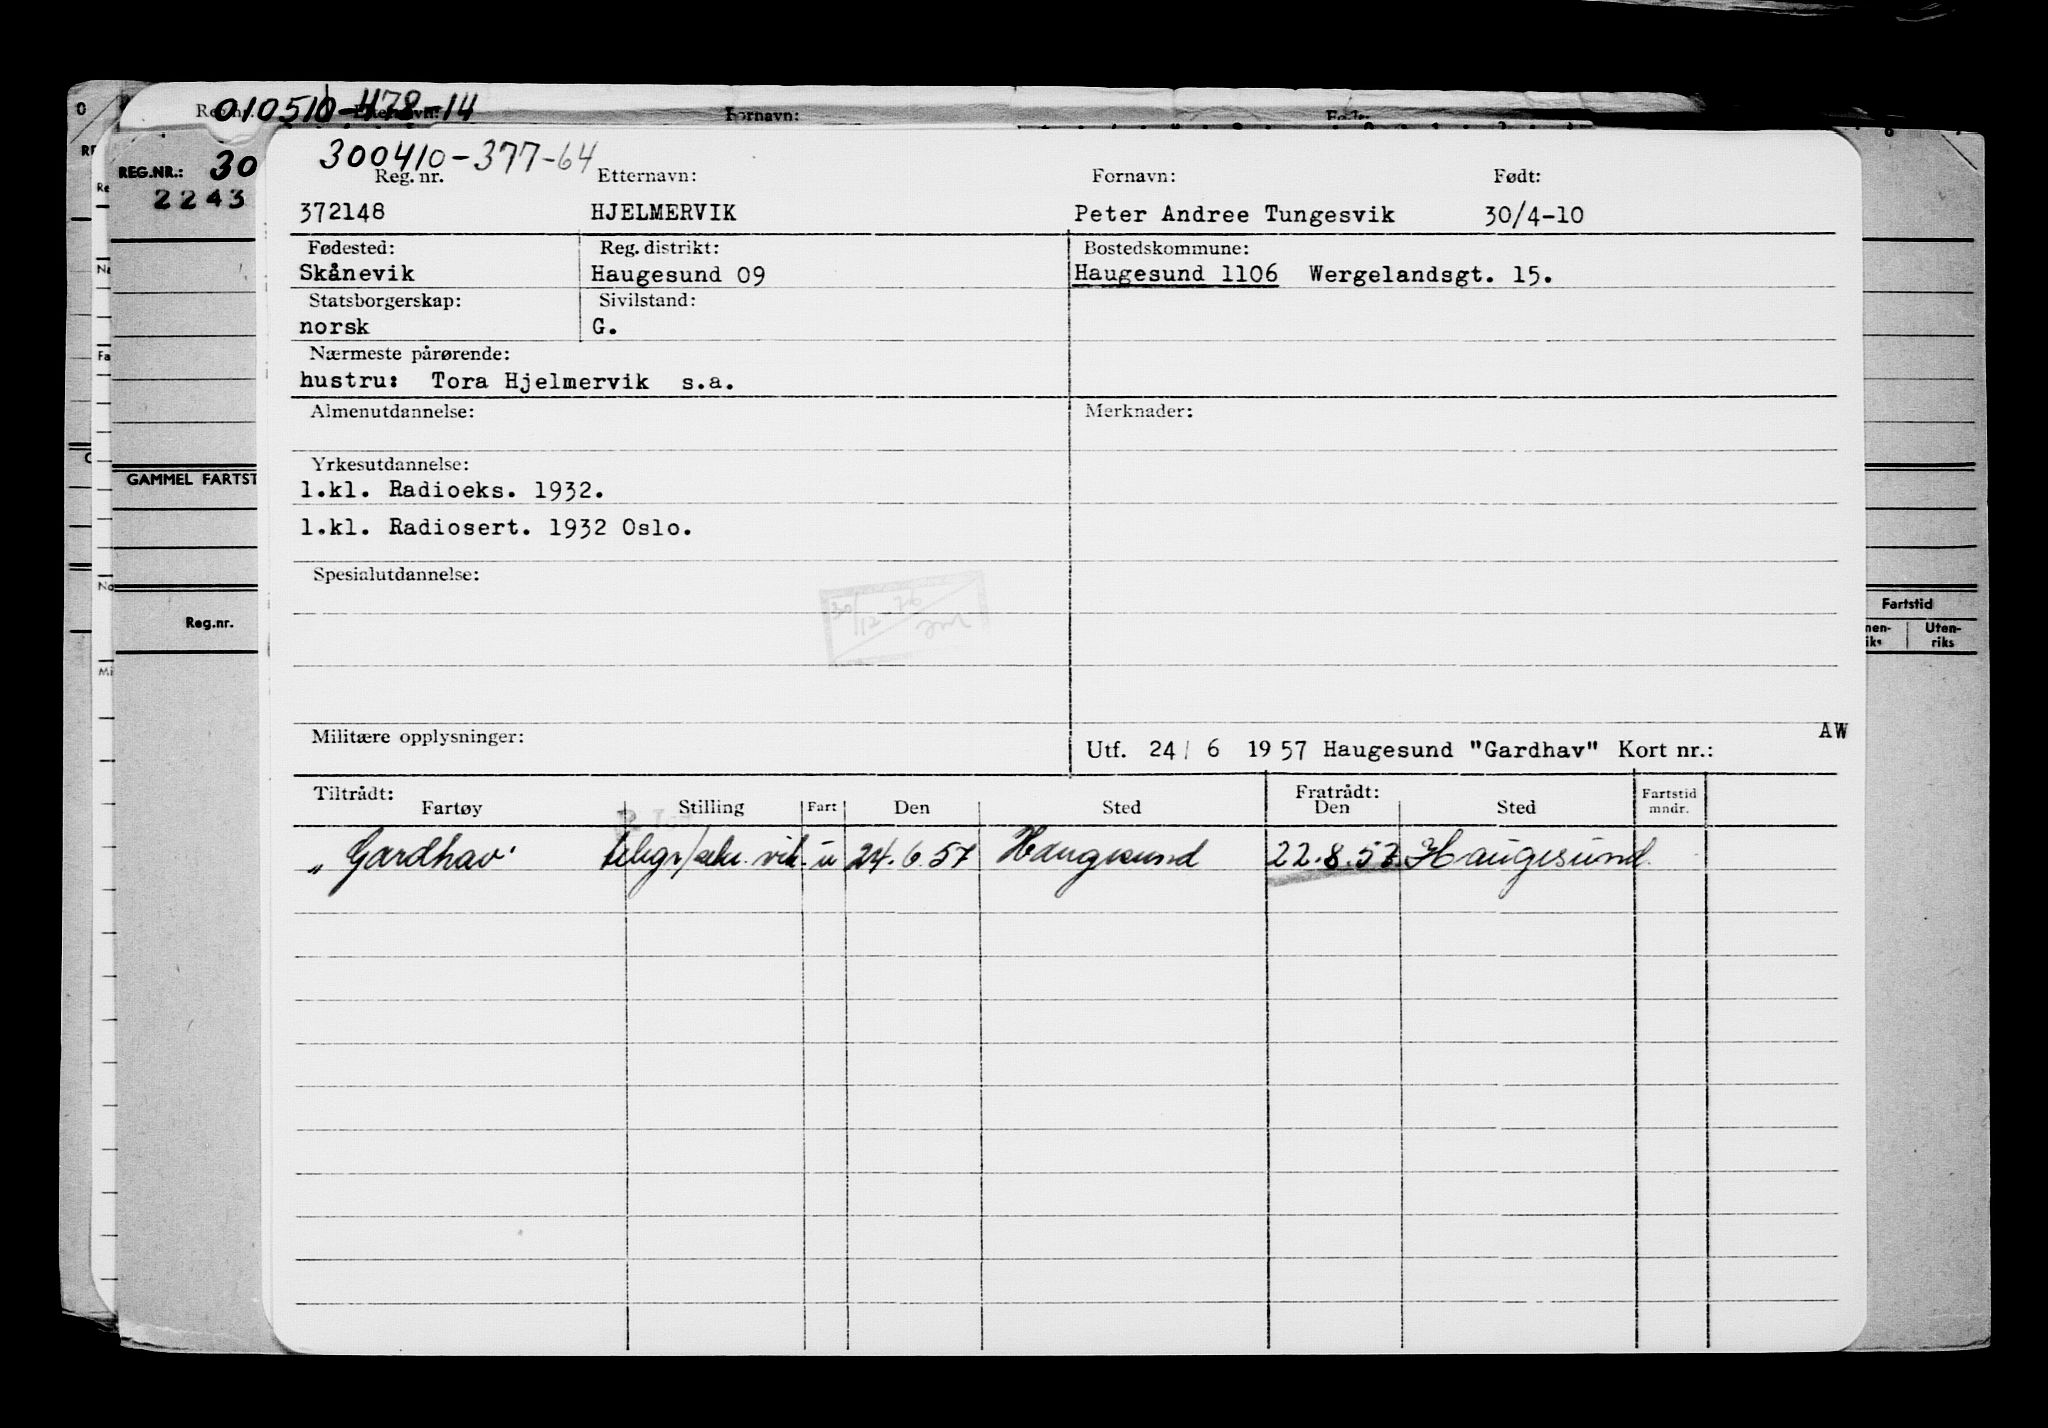 010510-478-14
Fornavn:
300410-377-64
Reg. nr. Etternavn: Fornavn: Født:
372148 HJELMERVIK Peter Andree Tungesvik 30/4-10
Fødested: Reg. distrikt: Bostedskommune:
Skånevik Haugesund 09 Haugesund 1106 Wergelandsgt. 15.
Statsborgerskap: Sivilstand:
norsk G.
Nærmeste pårørende:
hustru: Tora Hjelmervik s.a.
Almenutdannelse: Merknader:
Yrkesutdannelse:
1.kl. Radioeks. 1932.
1.kl. Radiosert. 1932 Oslo.
Spesialutdannelse:
Militære opplysninger: AW
Utf. 24/ 6 1957 Haugesund "Gardhav" Kort nr.:
Tiltrådt: Fratrådt: Fartstid
Fartøy Stilling Fart Den Sted Den Sted mndr.
"Gardhav" telegr/ vik. u 24.6.57 Haugesund 22.8.57 Haugesund
REG.NR.: 30
2243
GAMMEL FARTST
Reg.nr.
Fartstid
Uten-
riks